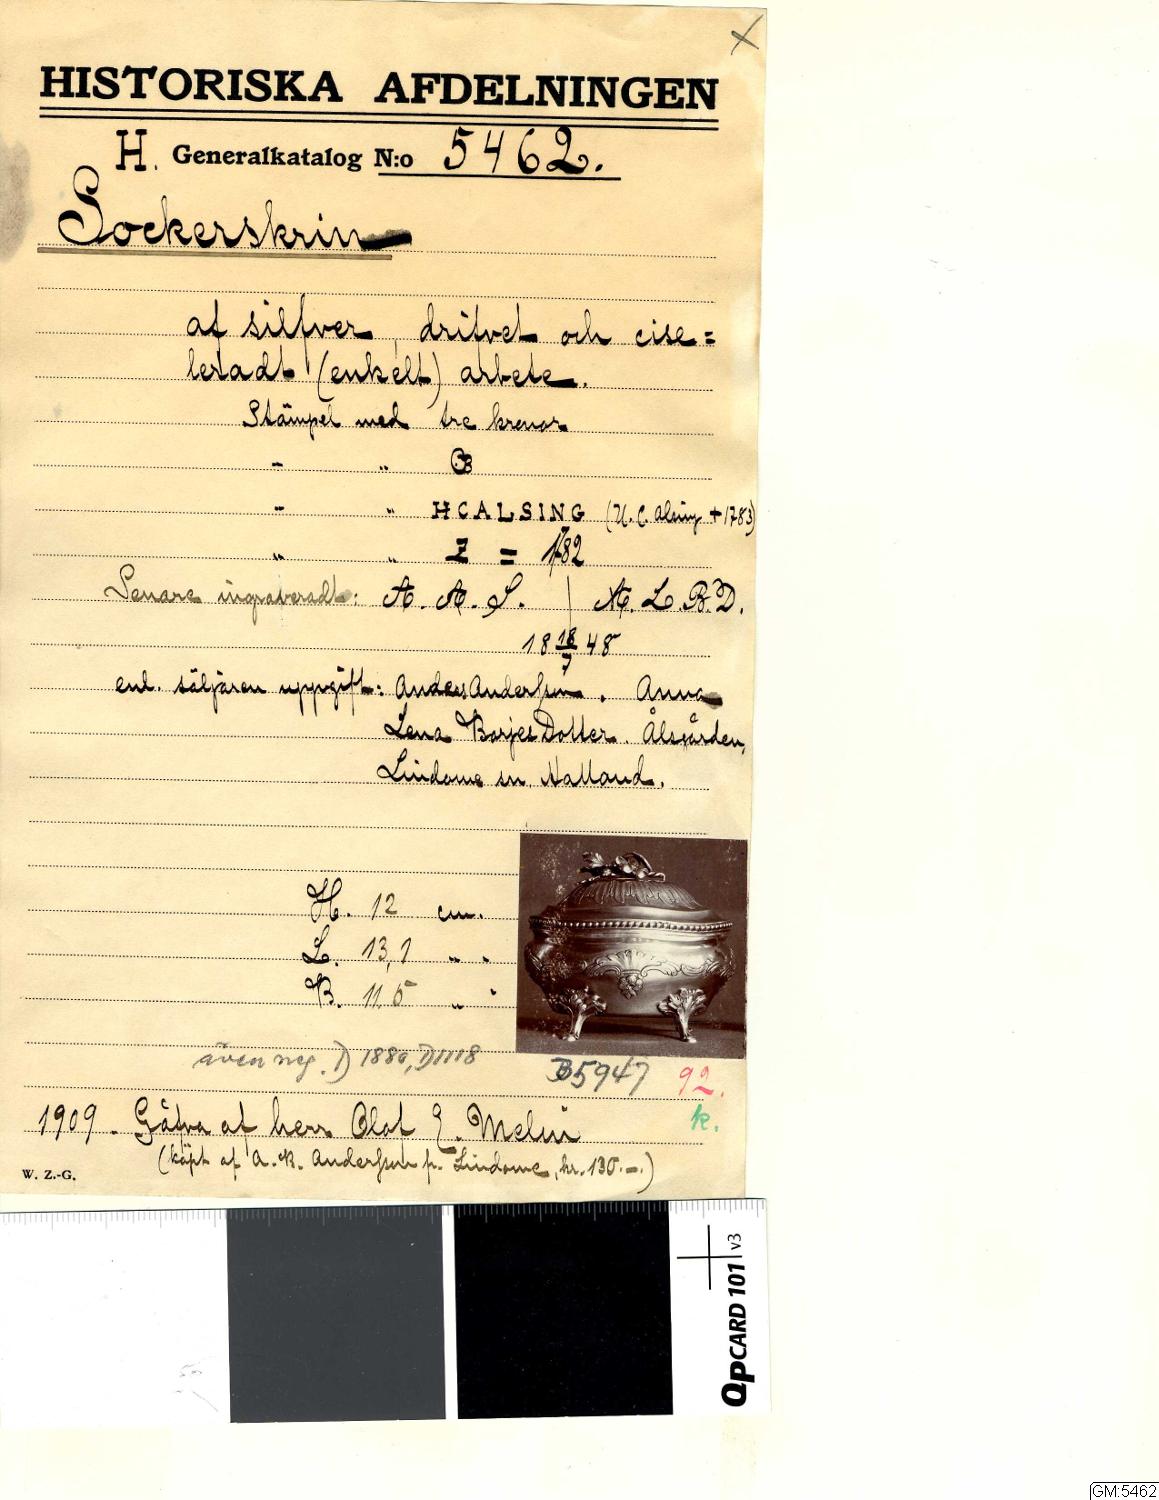 HISTORISKA AFDELNINGEN
H. Generalkatalog N:o 5462.
Sockerskrin
af silfver, drifvet och cise=
leradt (enkelt) arbete.
Stämpel med tre kronor
- " B
- " HCALSING (H. C. Alsing + 1783)
" " Z = 1782
Senare ingraveradt: A. A. S. | A. L. B. D.
18 18/7 48
enl. säljaren uppgift: Anders Andersson. Anna
Lena Börjes Dotter. Ålsgården,
Lindome sn. Halland.
H. 12 cm.
L. 13,1 " "
B. 11.5 " "
även neg. D 1886, D1118
B5947 92.
k.
1909. Gåfva af herr Olof E. Melin
(köpt af A. B. Andersson fr. Lindome, kr. 130.-.)
W. Z.-G.
QpCARD 101 v3
GM:5462